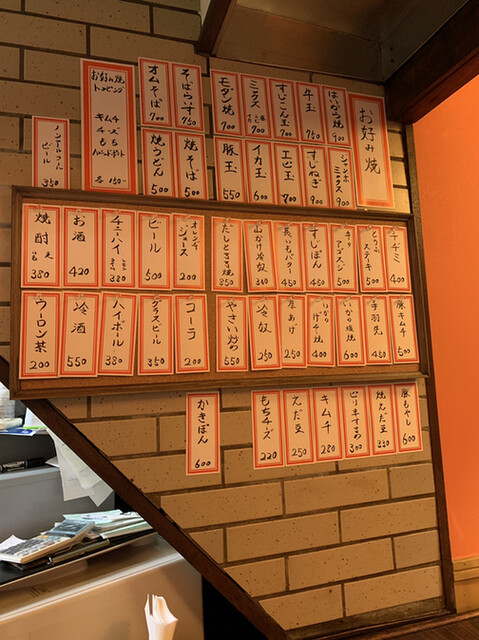 お好み焼
はいから焼 900
牛玉 750
すじこん玉 700
ミックス 700
モダン焼 700
ジャンボミックス 900
すじねぎ 900
エビ玉 700
イカ玉 600
豚玉 550
そばらーす 750
オムそば 700
焼そば 500
焼うどん 500
お好み焼
トッピング
キムチ
チーズ
もち
各150-
ノンアルコール
ビール
350
チヂミ 400
とうふステーキ 500
すじポン 450
長いもバター 450
山かけ冷奴
だしとまる焼 350
オレンジジュース 200
ビール 500
チューハイ 380
お酒 420
焼酎 380
豚キムチ 500
手羽先 450
いかの塩焼 600
いかのげそ焼 400
厚あげ 250
冷奴 250
やさい炒め 550
コーラ 200
グラスビール 350
ハイボール 380
冷酒 550
ウーロン茶 200
豚もやし 600
焼えだ豆 320
ピリ辛きゅうり 300
キムチ 280
えだ豆 250
もちチーズ 220
かきぽん 600